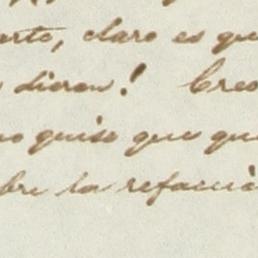 arte, claro es que
dieron! Creo
no quise que que
bre la refacció